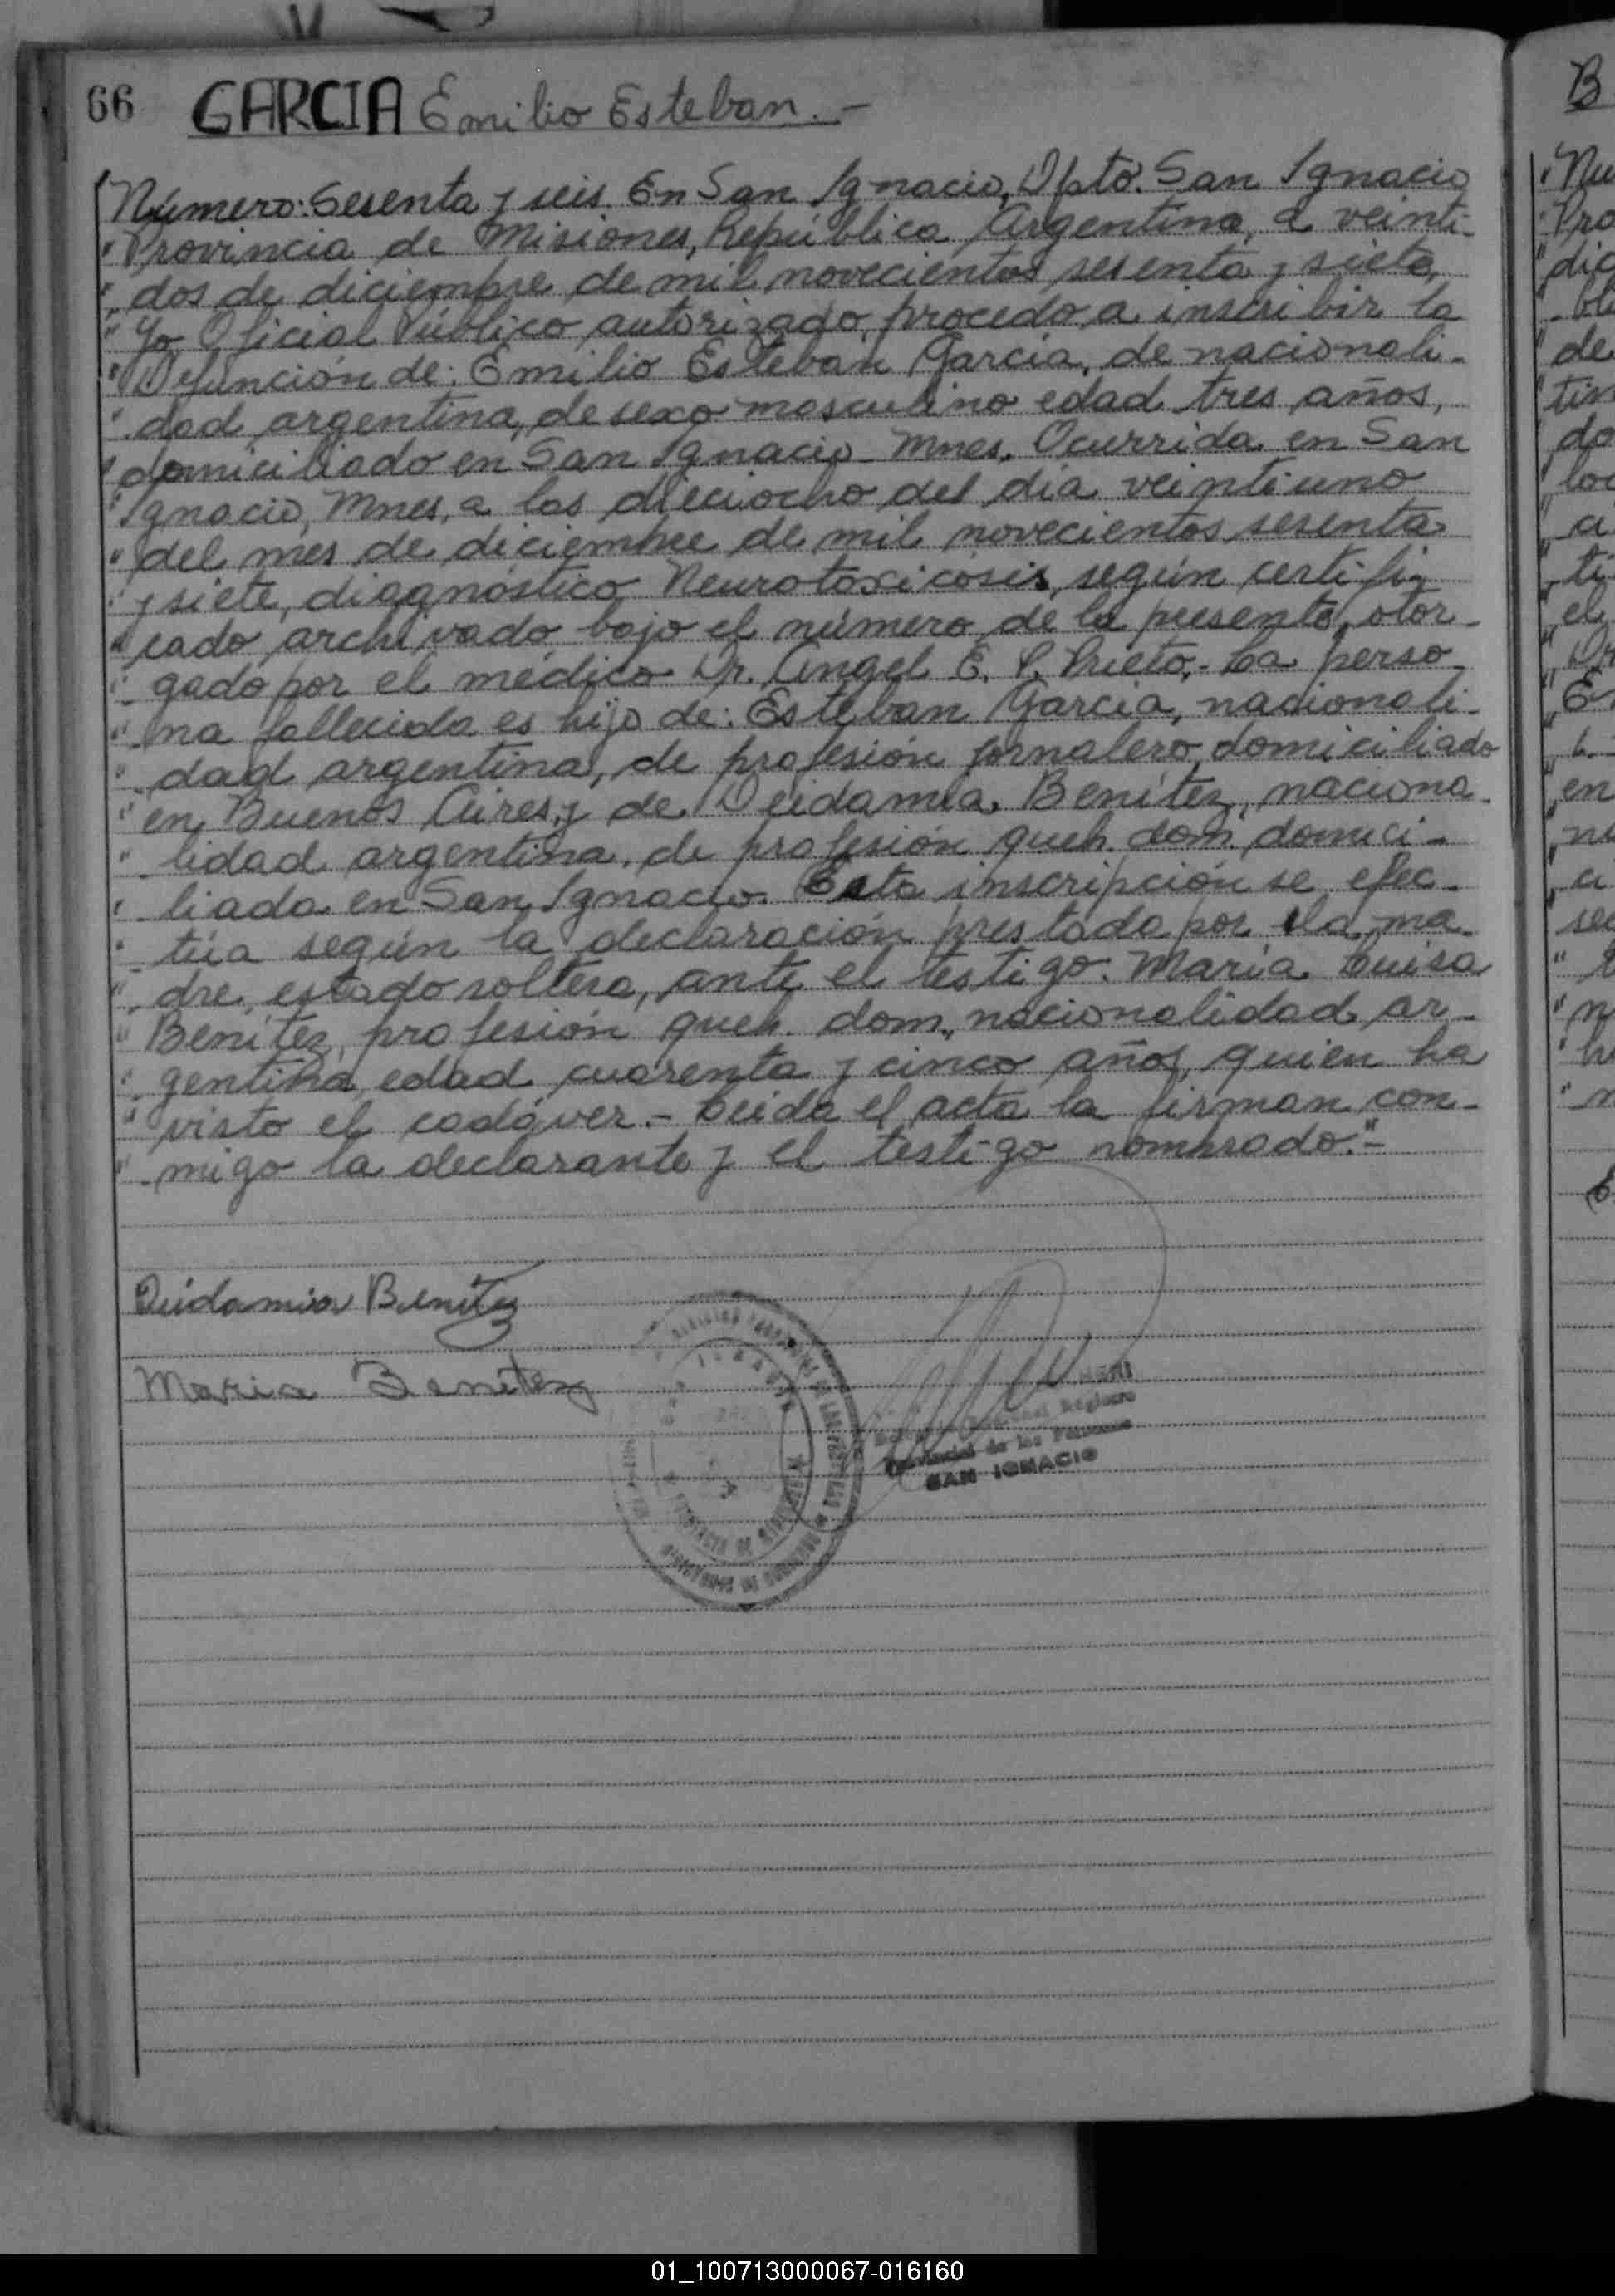 66 GARCIA Emilio Esteban.-
Número: Sesenta y seis. En San Ignacio, Dpto. San Ignacio
" Provincia de Misiones, República Argentina, a veinti-
" dos de diciembre de mil novecientos sesenta y siete,
" Yo Oficial Público autorizado, procedo a inscribir la
" Defunción de: Emilio Esteban García, de nacionali-
" dad argentina, de sexo masculino edad tres años,
" domiciliado en San Ignacio - Mnes. Ocurrida en San
" Ignacio, Mnes, a las dieciocho del día veintiuno
" del mes de diciembre de mil novecientos sesenta
" y siete, diagnóstico Neurotoxicosis, según certifi-
" cado archivado bajo el número de la presente, otor-
" gado por el médico Dr. Angel E. P. Prieto.- La perso-
" na fallecida es hijo de: Esteban García, nacionali-
" dad argentina, de profesión jornalero, domiciliado
" en Buenos Aires, y de Deidamia Benítez, naciona-
" lidad argentina, de profesión queh. dom. domici-
" liada en San Ignacio. Esta inscripción se efec-
" túa según la declaración prestada por la ma-
" dre, estado soltera, ante el testigo: María Luisa
" Benítez, profesión queh. dom., nacionalidad ar-
" gentina, edad cuarenta y cinco años, quien ha
" visto el cadáver.- Leída el acta la firman con-
" migo la declarante y el testigo nombrado."-
Deidamia Benitez
Maria Benitez
Registro
Provincial de las Personas
SAN IGNACIO
01_100713000067-016160